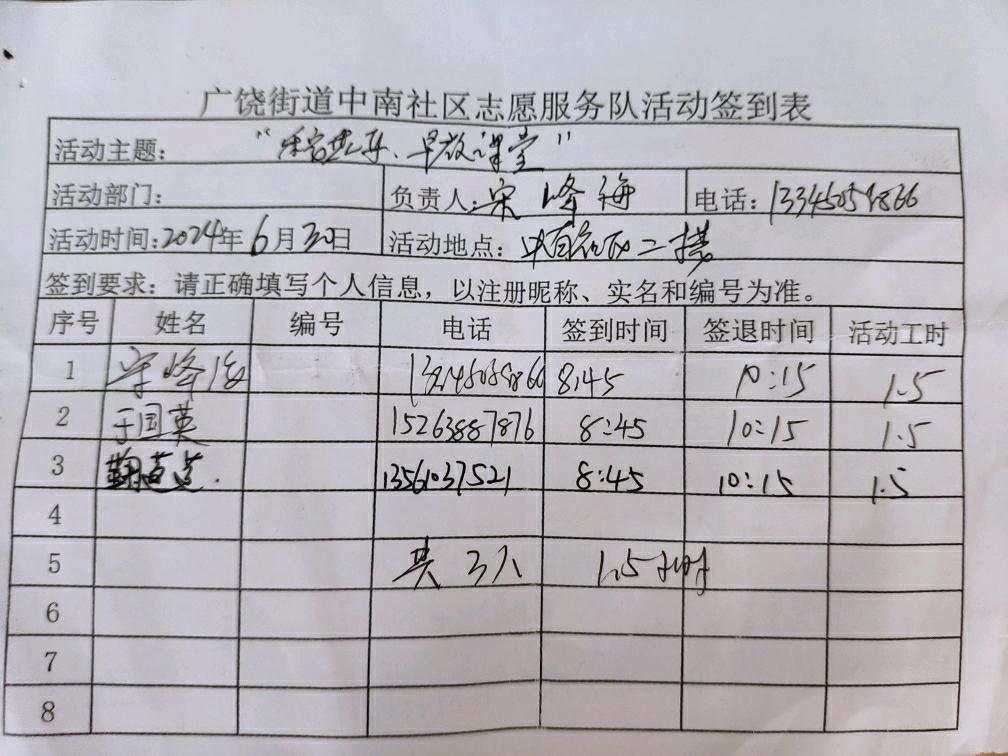 广饶街道中南社区志愿服务队活动签到表
活动主题: "乐、早教课堂"
活动部门: 负责人: 宋峰海 电话: 13345059866
活动时间: 2024年6月30日 活动地点: 二楼
签到要求: 请正确填写个人信息，以注册昵称、实名和编号为准。
序号 姓名 编号 电话 签到时间 签退时间 活动工时
1 宋峰海 8:45 10:15 1.5
2 于国英 15263887876 8:45 10:15 1.5
3 13561037521 8:45 10:15 1.5
4
5 共3人 1.5小时
6
7
8